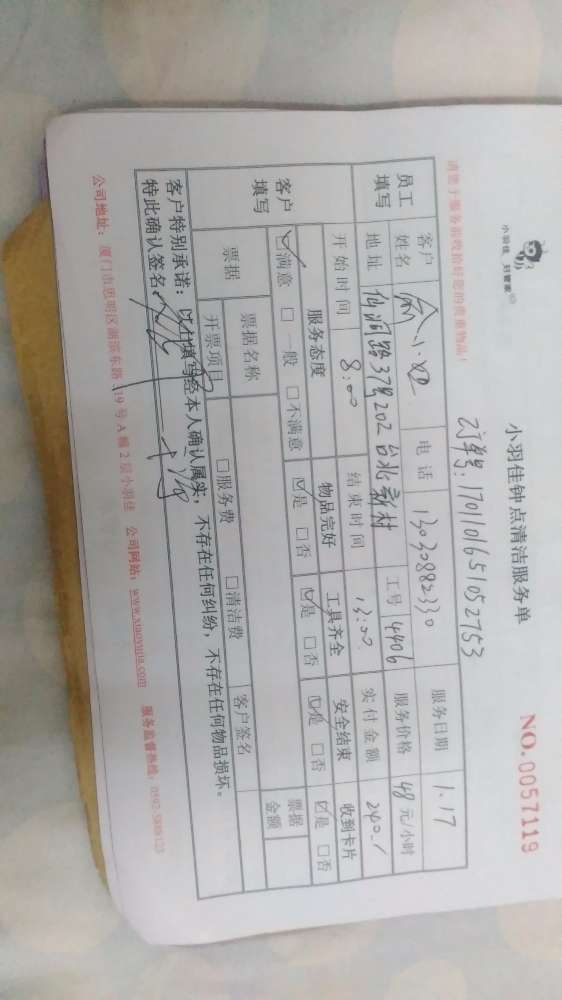 小羽佳 好管家
小羽佳钟点清洁服务单
NO.0057119
订单号:1701101651052753
请您于服务前收拾好您的贵重物品!
员工填写 客户姓名 俞小姐 电话 13030882330 服务日期 1.17
地址 仙洞路37号202台北新村 工号 4406 服务价格 48元/小时
开始时间 8:00 结束时间 13:00 实付金额 240.-
客户填写 服务态度 物品完好 工具齐全 安全结束 收到卡片
☑满意 □一般 □不满意 ☑是 □否 ☑是 □否 ☑是 □否 ☑是 □否
票据 票据名称 客户签名 票据金额
开票项目 □服务费 □清洁费
客户特别承诺:以上填写经本人确认属实,不存在任何纠纷,不存在任何物品损坏。
特此确认签名:
公司地址:厦门市思明区湖滨东路119号A幢2层小羽佳 公司网站:www.xiaoyujia.com 服务监督热线:0592-5886123